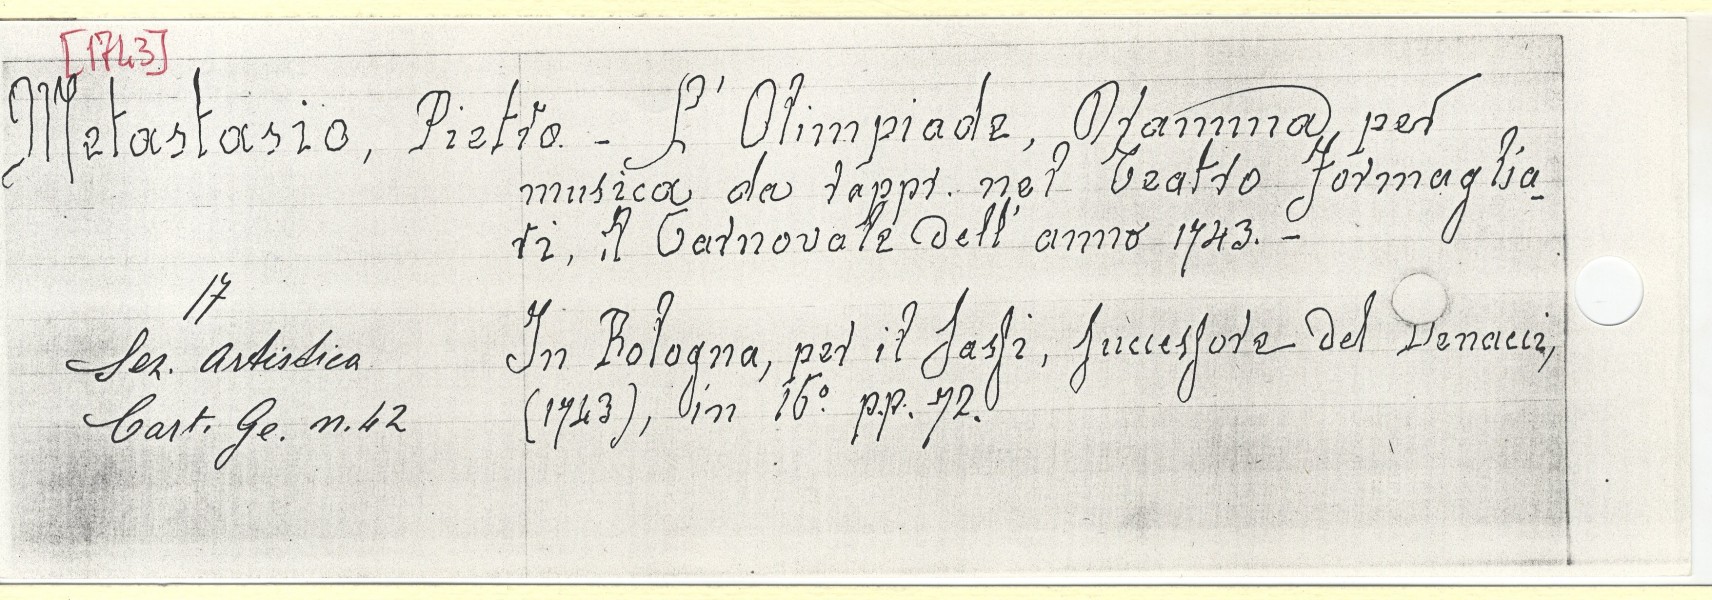 [1743]
Metastasio, Pietro. - L' Olimpiade, Dramma per
musica da rappr. nel Teatro Formaglia-
ri, il Carnovale dell' anno 1743. -
17
Sez. Artistica
Cart. Ge. n. 42
In Bologna, per il Sassi, Successore del Benacci,
(1743), in 16° pp. 72.